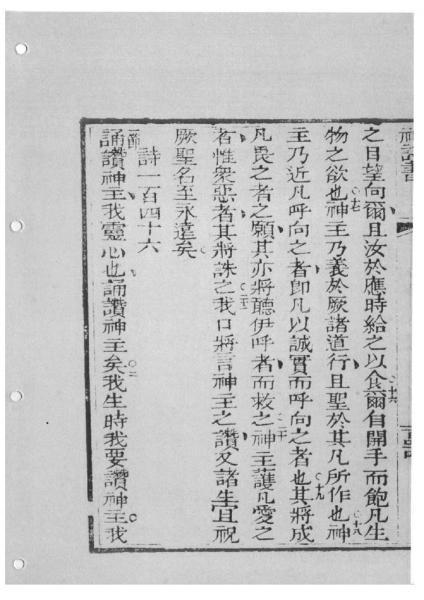 神詩書
之目望向爾且汝於應時給之以食○十六爾自開手而飽凡生
物之欲也○十七神主乃義於厥諸道行且聖於其凡所作也○十八神
主乃近凡呼向之者即凡以誠實而呼向之者也○十九其將成
凡畏之者之願其亦將聽伊呼者而救之○二十神主護凡愛之
者惟衆惡者其將誅之○二一我口將言神主之讚又諸生宜祝
厥聖名至永遠矣
詩一百四十六
一節誦讚神主我靈心也誦讚神主矣○二我生時我要讚神主我